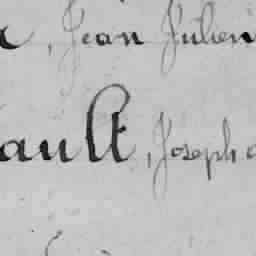 , Jean Julien
ault, Joseph